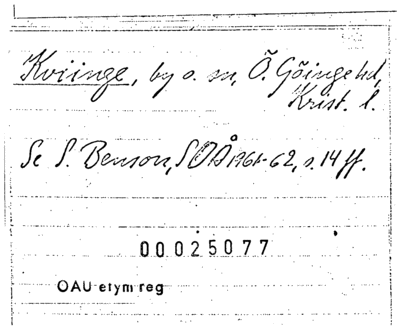 Kviinge, by o. sn, Ö. Göinge hd,
Krist. l.
Se S. Benson, SOÅ 1961-62, s. 14 ff.
00025077
OAU etym reg